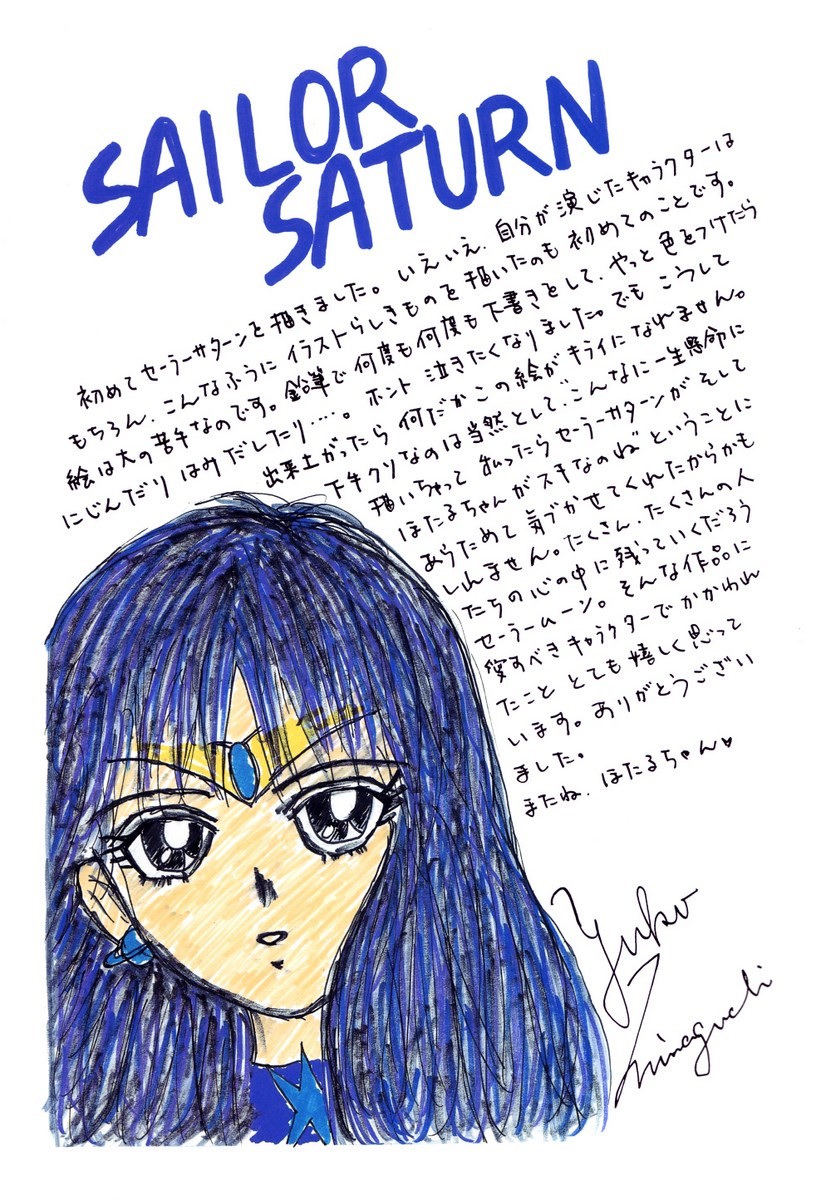 SAILOR
SATURN
初めてセーラーサターンを描きました。いえいえ、自分が演じたキャラクターは
もちろん、こんなふうにイラストらしきものを描いたのも初めてのことです。
絵は大の苦手なのです。鉛筆で何度も何度も下書きをして、やっと色をつけたら
にじんだりはみだしたり・・・・。ホント泣きたくなりました。でもこうして
出来上がったら何だかこの絵がキライになれません。
下手クソなのは当然として、こんなに一生懸命に
描いちゃって私ったらセーラーサターンがそして
ほたるちゃんがスキなのねということに
あらためて気づかせてくれたからかも
しれません。たくさん、たくさんの人
たちの心の中に残っていくだろう
セーラームーン。そんな作品に
愛すべきキャラクターでかかわれ
たこととても嬉しく思って
います。ありがとうござい
ました。
またね、ほたるちゃん♥
Yuko
Minaguchi